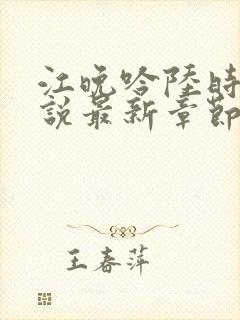 江晚吟陸時
說最新章節
王春萍